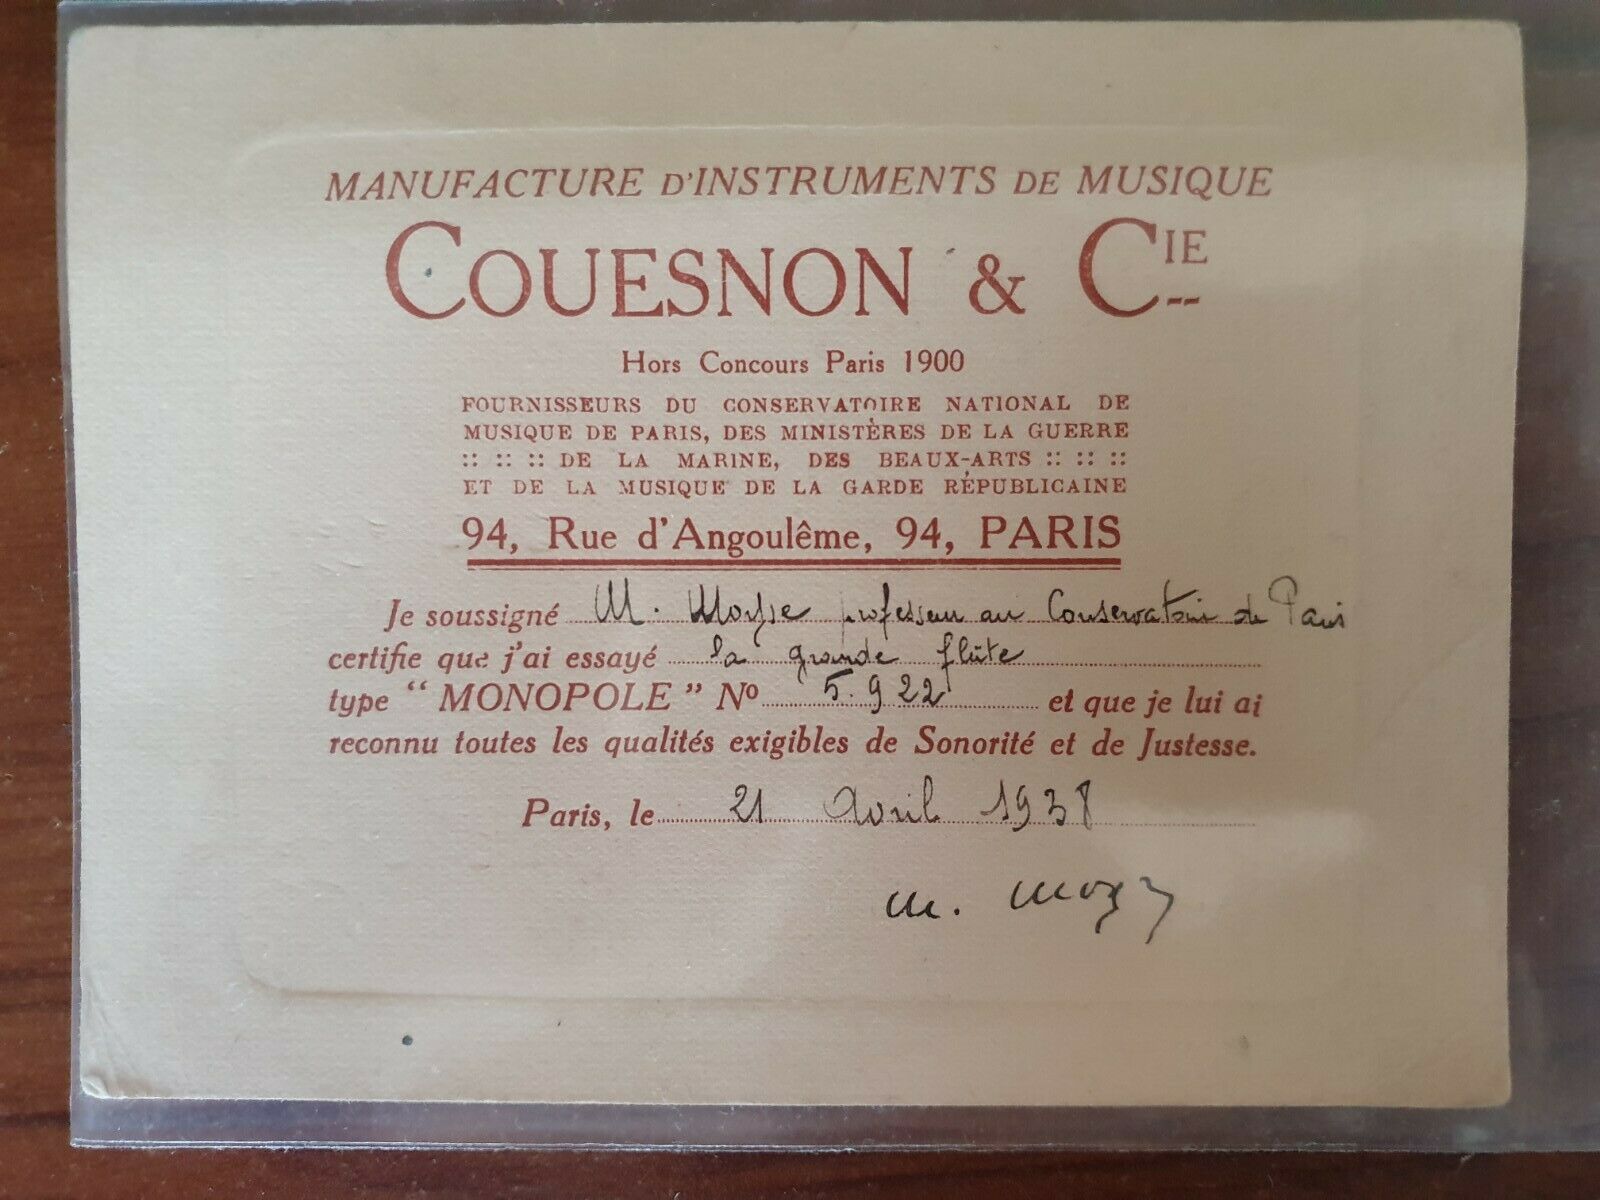 MANUFACTURE D'INSTRUMENTS DE MUSIQUE
COUESNON & CIE
Hors Concours Paris 1900
FOURNISSEURS DU CONSERVATOIRE NATIONAL DE
MUSIQUE DE PARIS, DES MINISTÈRES DE LA GUERRE
:: :: :: DE LA MARINE, DES BEAUX-ARTS :: :: ::
ET DE LA MUSIQUE DE LA GARDE RÉPUBLICAINE
94, Rue d'Angoulême, 94, PARIS
Je soussigné M. Moyse professeur au Conservatoire de Paris
certifie que j'ai essayé la grande flûte
type “ MONOPOLE ” No 5.922 et que je lui ai
reconnu toutes les qualités exigibles de Sonorité et de Justesse.
Paris, le 21 Avril 1938
M. Moyse